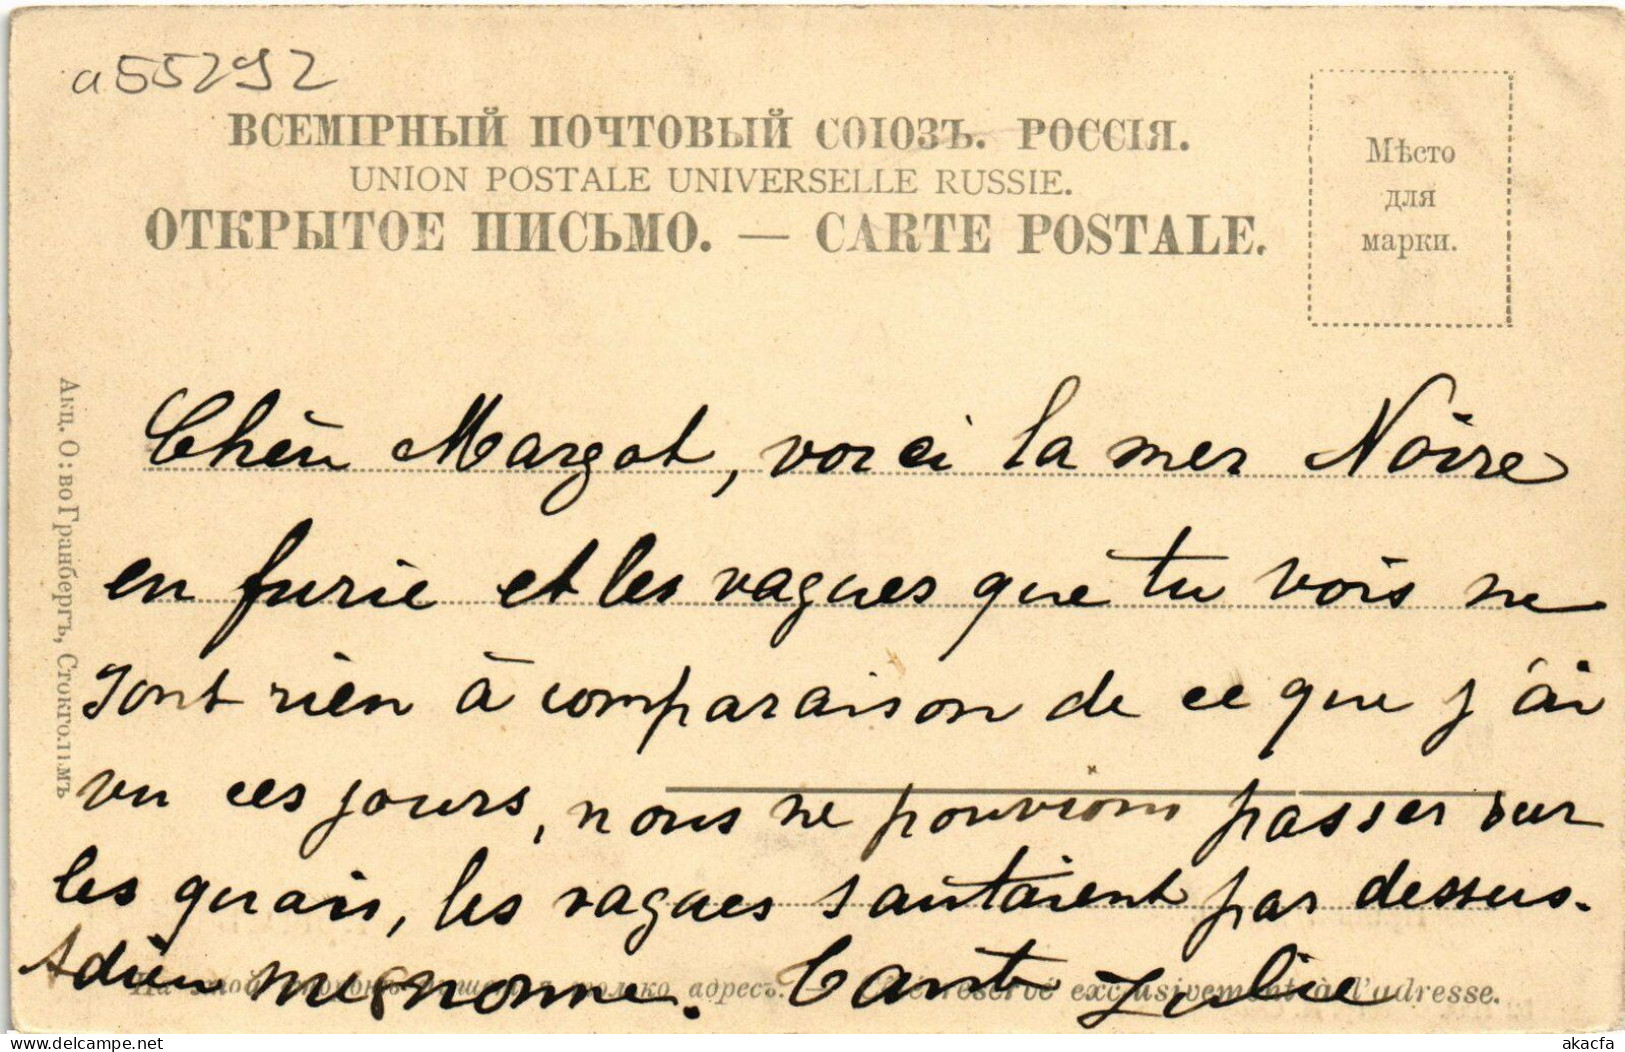 a55292
ВСЕМІРНЫЙ ПОЧТОВЫЙ СОЮЗЪ. РОССІЯ.
UNION POSTALE UNIVERSELLE RUSSIE.
ОТКРЫТОЕ ПИСЬМО. — CARTE POSTALE.
Мѣсто
для
марки.
Акц. О:во Гранбергъ, Стокгольмъ
Chère Margot, voici la mer Noire
en furie et les vagues que tu vois ne
sont rien à comparaison de ce que j'ai
vu ces jours, nous ne pouvions passer sur
les quais, les vagues sautaient par dessus.
Adieu mignonne. Tante Julie
только адресъ. réservé exclusivement à l'adresse.
akacfa